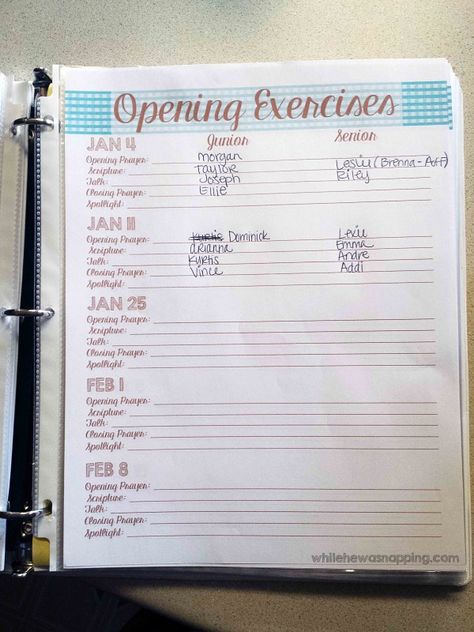 Opening Exercises
Junior Senior
JAN 4
Opening Prayer: Morgan
Scripture: Taylor Leslie (Brenna-Aff)
Talk: Joseph Riley
Closing Prayer: Ellie
Spotlight:
JAN 11
Opening Prayer: Kurtis Dominick Lexie
Scripture: Arianna Emma
Talk: Kurtis Andre
Closing Prayer: Vince Addi
Spotlight:
JAN 25
Opening Prayer:
Scripture:
Talk:
Closing Prayer:
Spotlight:
FEB 1
Opening Prayer:
Scripture:
Talk:
Closing Prayer:
Spotlight:
FEB 8
Opening Prayer:
Scripture:
Talk:
Closing Prayer:
Spotlight:
whilehewasnapping.com